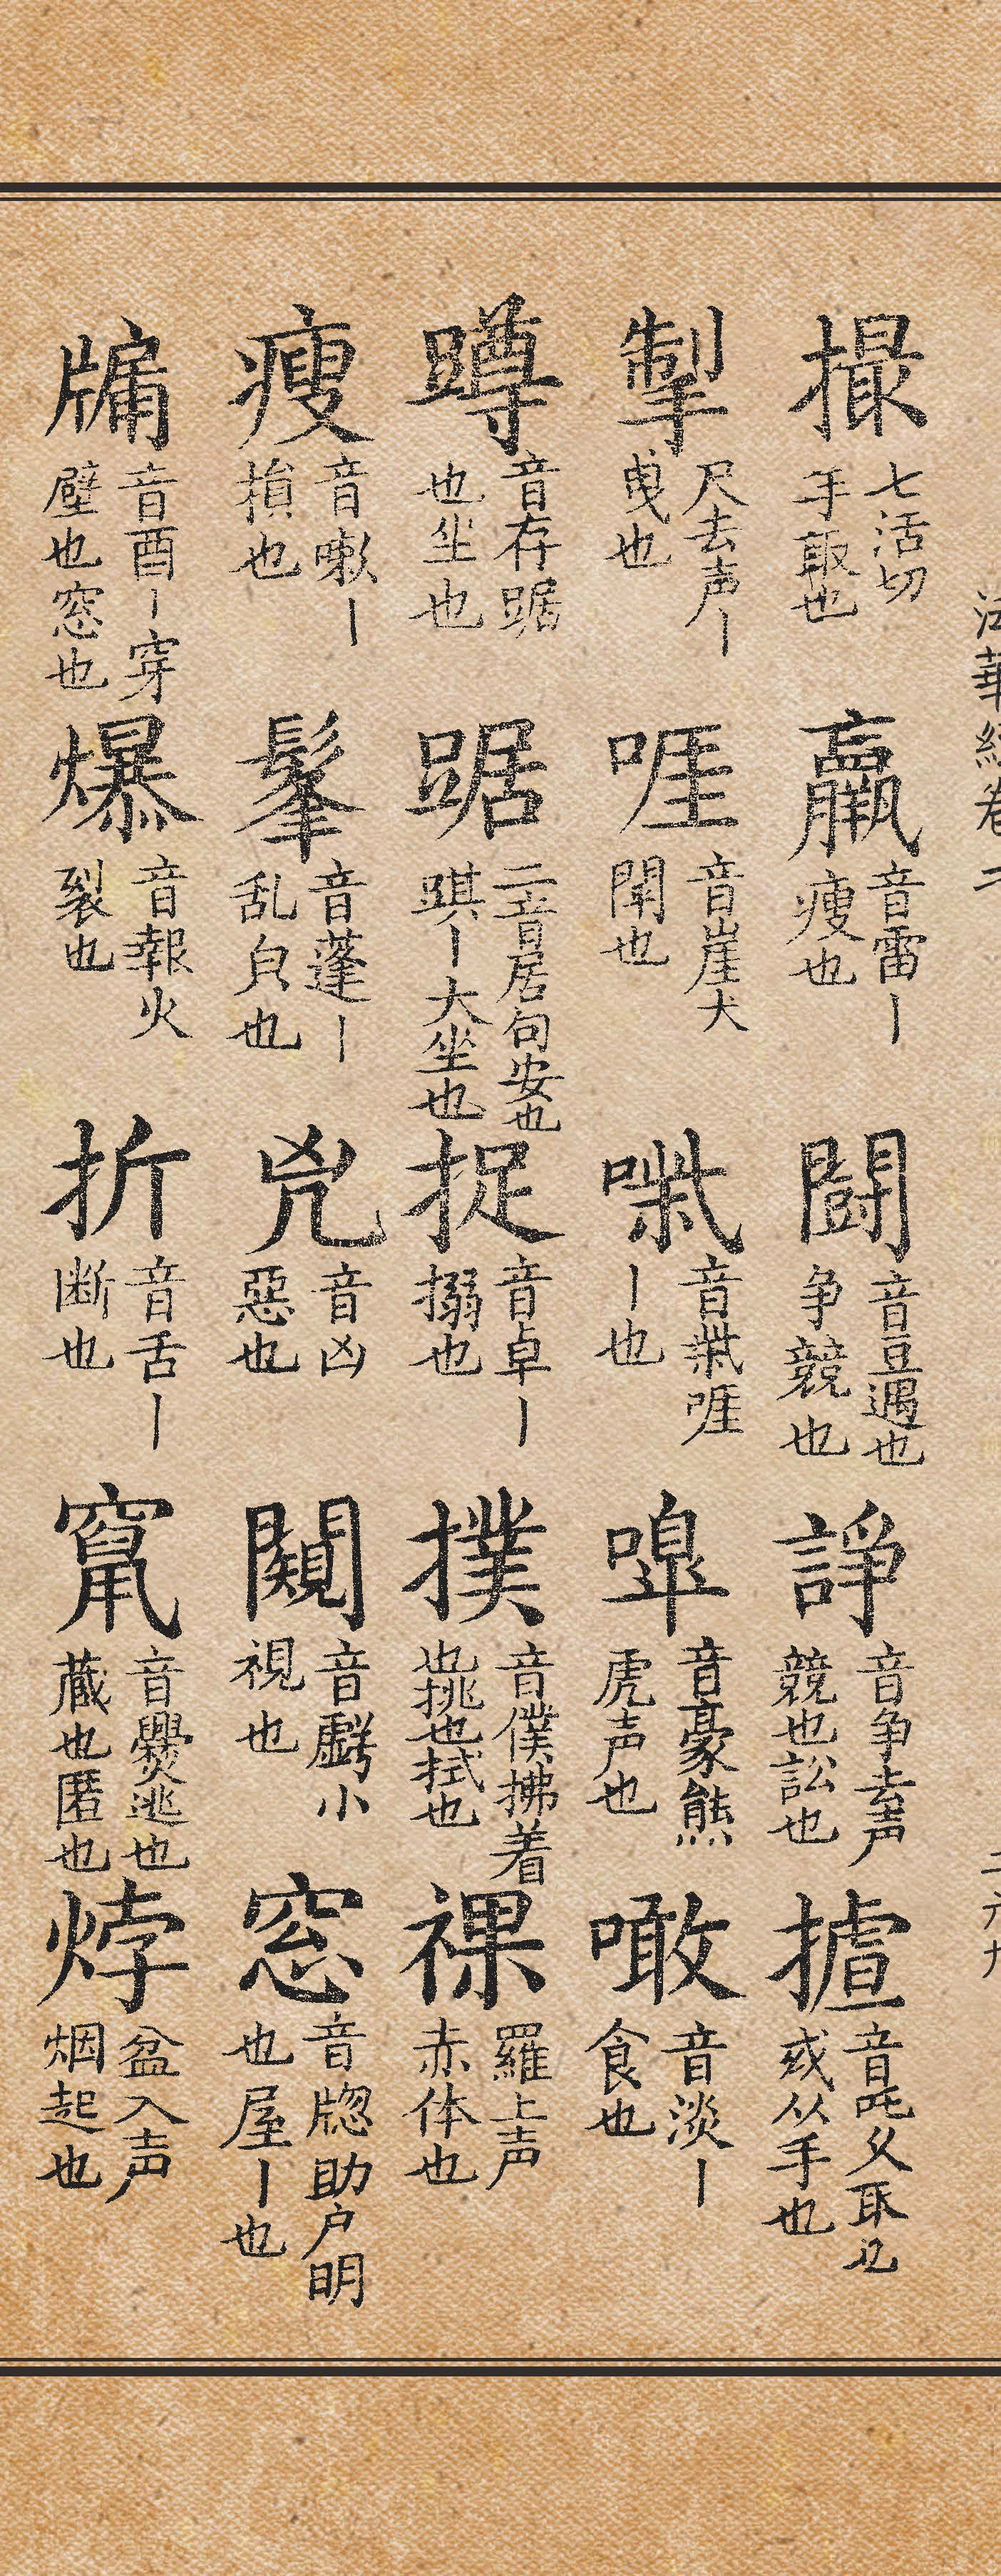 法華經卷二
二六九
撮 七活切 手取也 羸 音雷丨 瘦也 鬪 音豆遇也 争競也 諍 音争去声 競也訟也 摣 音
或从手也
掣 尺去声丨 曳也 啀 音崖犬 鬥也 㗱 音柴啀 丨也 嘷 音豪熊 虎声也 噉 音淡丨 食也
蹲 音存踞 也坐也 踞 二音居句安也 踑丨大坐也 捉 音卓丨 搦也 撲 音僕拂着 也挑也拭也 裸 羅上声 赤体也
瘦 音嗽丨 損也 髼 音蓬丨 乱皃也 兇 音凶 惡也 闚 音虧小 視也 窓 音牎助户明 也屋丨也
牗 音酉丨穿 壁也窓也 爆 音報火 裂也 折 音舌丨 断也 竄 音爨逃也 蔵也匿也 烰 盆入声 烟起也